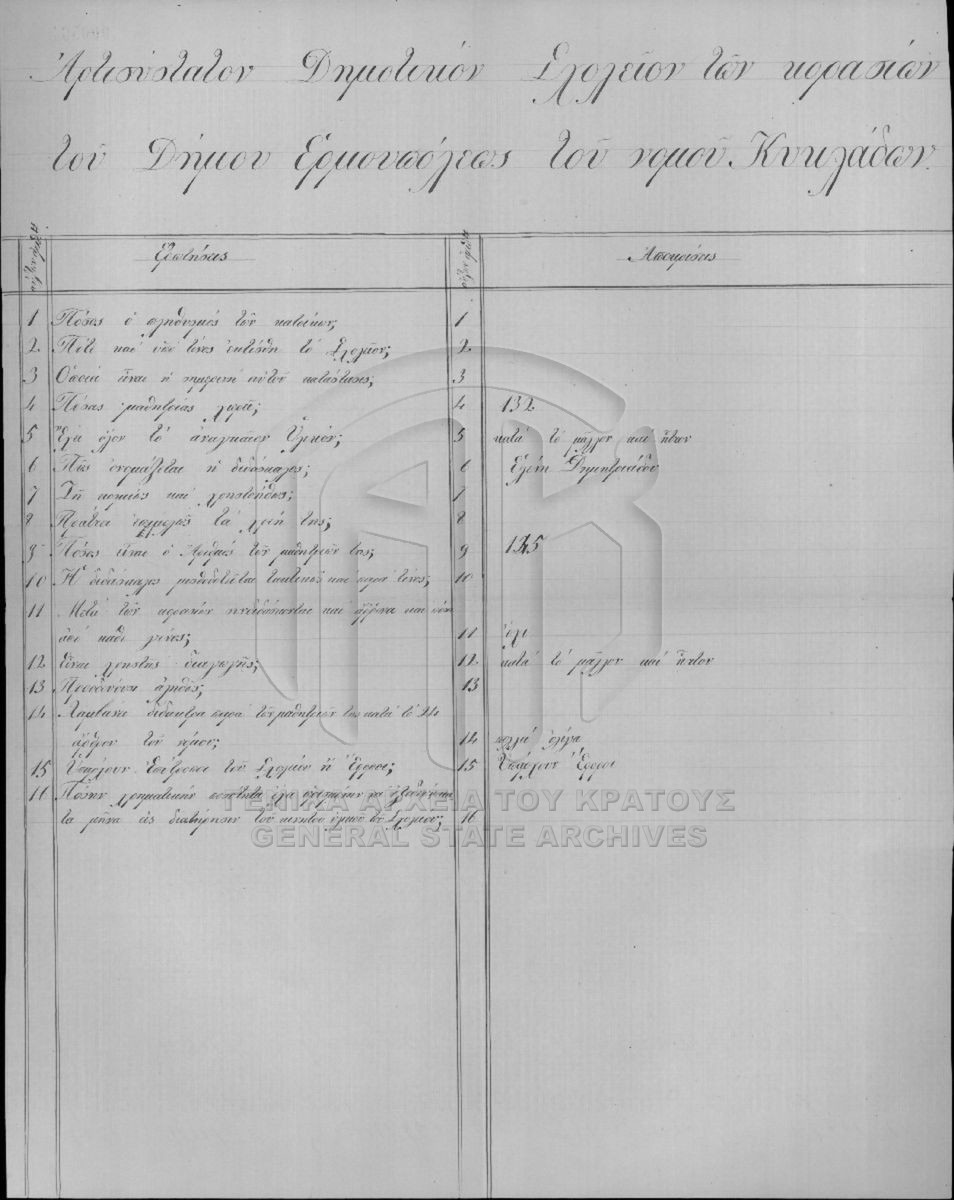 Ἀρτισύστατον Δημοτικόν Σχολεῖον τῶν κορασίων
τοῦ Δήμου Ἑρμουπόλεως τοῦ νομοῦ Κυκλάδων.
Ἐρωτήσεις Ἀποκρίσεις
1 Πόσος ὁ πληθυσμός τῶν κατοίκων; 1
2 Πότε καί ὑπό τίνος ἐκτίσθη τό Σχολεῖον; 2
3 Ὁποία εἶναι ἡ σημερινή αὐτοῦ κατάστασις; 3
4 Πόσας μαθητρίας χωρεῖ; 4 132
5 Ἔχει ὅλον τό ἀναγκαῖον Ὑλικόν; 5 κατά τό μᾶλλον καί ἧττον
6 Πῶς ὀνομάζεται ἡ διδάσκαλος; 6 Ἑλένη Δημητριάδου
7 Ζῇ κοσμίως καί χρηστοήθως; 7
8 Πράττει ἐπιμελῶς τά χρέη της; 8
9 Πόσος εἶναι ὁ Ἀριθμός τῶν μαθητριῶν της; 9 135
10 Ἡ διδάσκαλος μισθοδοτεῖται τακτικῶς καί παρά τίνος; 10
11 Μετά τῶν κορασίων συνδιδάσκονται καί ἀῤῥενα καί πόσα
ἀπό κάθε γένος; 11 ὄχι
12 Εἶναι χρηστῆς διαγωγῆς; 12 κατά τό μᾶλλον καί ἧττον
13 Προοδεύουσι ἀληθῶς; 13
14 Λαμβάνει δίδακτρα παρά τῶν μαθητριῶν της κατά τό
ἄρθρον τοῦ νόμου; 14 πολλά ὀλίγα
15 Ὑπάρχουν Ἐπίτροποι τοῦ Σχολείου ἤ Ἔφοροι; 15 Ὑπάρχουν Ἔφοροι
16 Πόσην χρηματικήν ποσότητα ἔχει
τα μῆνα εἰς διατήρησιν τοῦ κινητοῦ ὑλικοῦ τοῦ Σχολείου; 16
ΓΕΝΙΚΑ ΑΡΧΕΙΑ ΤΟΥ ΚΡΑΤΟΥΣ
GENERAL STATE ARCHIVES